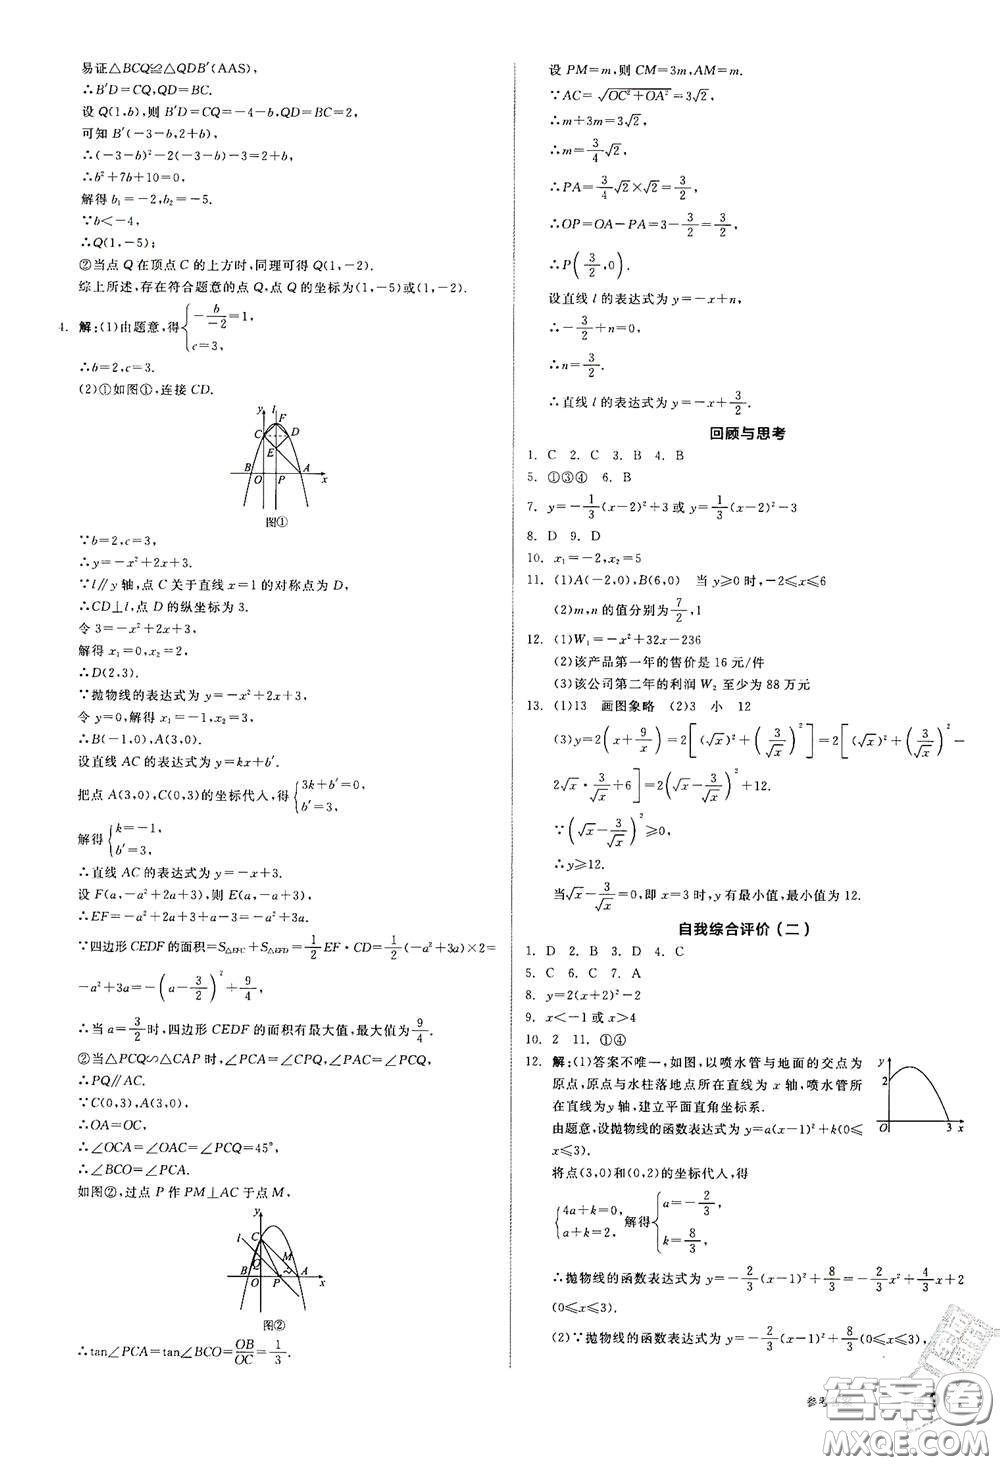 易证△BCQ≌△QDB′(AAS),
∴B′D=CQ,QD=BC.
设 Q(1,b),则 B′D=CQ=-4-b,QD=BC=2,
可知 B′(-3-b,2+b),
∴(-3-b)²-2(-3-b)-3=2+b,
∴b²+7b+10=0,
解得 b₁=-2,b₂=-5.
∵b<-4,
∴Q(1,-5);
②当点 Q 在顶点 C 的上方时,同理可得 Q(1,-2).
综上所述,存在符合题意的点 Q,点 Q 的坐标为(1,-5)或(1,-2).
4. 解:(1)由题意,得{-b/-2=1, c=3,
∴b=2,c=3.
(2)①如图①,连接 CD.
y l F C D E B O P A x
图①
∵b=2,c=3,
∴y=-x²+2x+3.
∵l∥y 轴,点 C 关于直线 x=1 的对称点为 D,
∴CD⊥l,点 D 的纵坐标为 3.
令 3=-x²+2x+3,
解得 x₁=0,x₂=2,
∴D(2,3).
∵抛物线的表达式为 y=-x²+2x+3,
令 y=0,解得 x₁=-1,x₂=3,
∴B(-1,0),A(3,0).
设直线 AC 的表达式为 y=kx+b′.
把点 A(3,0),C(0,3)的坐标代入,得{3k+b′=0, b′=3,
解得{k=-1, b′=3,
∴直线 AC 的表达式为 y=-x+3.
设 F(a,-a²+2a+3),则 E(a,-a+3),
∴EF=-a²+2a+3+a-3=-a²+3a.
∵四边形 CEDF 的面积=S△EFC+S△EFD=1/2EF·CD=1/2(-a²+3a)×2=
-a²+3a=-(a-3/2)²+9/4,
∴当 a=3/2时,四边形 CEDF 的面积有最大值,最大值为9/4.
②当△PCQ∽△CAP 时,∠PCA=∠CPQ,∠PAC=∠PCQ,
∴PQ∥AC.
∵C(0,3),A(3,0),
∴OA=OC,
∴∠OCA=∠OAC=∠PCQ=45°,
∴∠BCO=∠PCA.
如图②,过点 P 作 PM⊥AC 于点 M,
y l C M Q B O P A x
图②
∴tan∠PCA=tan∠BCO=OB/OC=1/3.
设 PM=m,则 CM=3m,AM=m.
∵AC=√(OC²+OA²)=3√2,
∴m+3m=3√2,
∴m=3/4√2,
∴PA=3/4√2×√2=3/2,
∴OP=OA-PA=3-3/2=3/2,
∴P(3/2,0).
设直线 l 的表达式为 y=-x+n,
∴-3/2+n=0,
∴n=3/2.
∴直线 l 的表达式为 y=-x+3/2.
回顾与思考
1. C 2. C 3. B 4. B
5. ①③④ 6. B
7. y=-1/3(x-2)²+3 或 y=1/3(x-2)²-3
8. D 9. D
10. x₁=-2,x₂=5
11. (1)A(-2,0),B(6,0) 当 y≥0 时,-2≤x≤6
(2)m,n 的值分别为7/2,1
12. (1)W₁=-x²+32x-236
(2)该产品第一年的售价是 16 元/件
(3)该公司第二年的利润 W₂ 至少为 88 万元
13. (1)13 画图象略 (2)3 小 12
(3)y=2(x+9/x)=2[(√x)²+(3/√x)²]=2[(√x)²+(3/√x)²-
2√x·3/√x+6]=2(√x-3/√x)²+12.
∵(√x-3/√x)²≥0,
∴y≥12.
当√x-3/√x=0,即 x=3 时,y 有最小值,最小值为 12.
自我综合评价(二)
1. D 2. B 3. D 4. C
5. C 6. C 7. A
8. y=2(x+2)²-2
9. x<-1 或 x>4
10. 2 11. ①④
12. 解:(1)答案不唯一,如图,以喷水管与地面的交点为
原点,原点与水柱落地点所在直线为 x 轴,喷水管所
在直线为 y 轴,建立平面直角坐标系.
由题意,设抛物线的函数表达式为 y=a(x-1)²+k(0≤
x≤3).
y 2 O 3 x
将点(3,0)和(0,2)的坐标代入,得
{4a+k=0, a+k=2, 解得{a=-2/3, k=8/3,
∴抛物线的函数表达式为 y=-2/3(x-1)²+8/3=-2/3x²+4/3x+2
(0≤x≤3).
(2)∵抛物线的函数表达式为 y=-2/3(x-1)²+8/3(0≤x≤3),
参考答案
答案卷
MXQE.COM